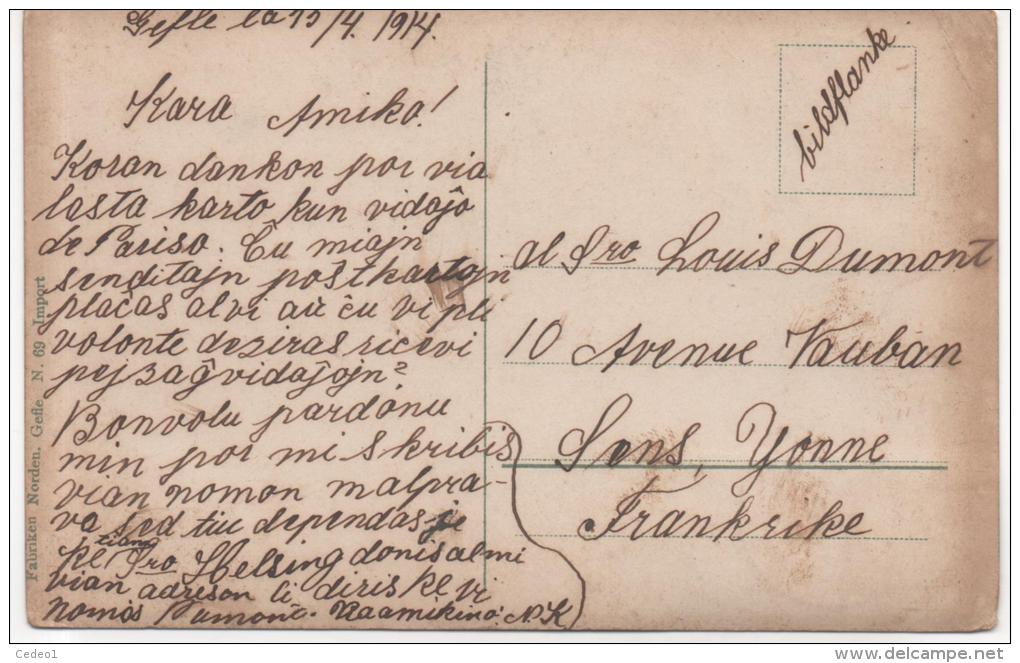 Gefle la 15/4. 1914.
Kara Amiko!
Koran dankon por via
lasta karto kun vidaĵo
de Pariso. Ĉu miajn
senditajn poŝtkartojn
plaĉas al vi aŭ ĉu vi pli
volonte deziras ricevi
pejzaĝvidaĵojn?
Bonvolu pardonu
min por mi skribis
vian nomon malpra-
va sed tiu dependas je
ke tiam Sro Helsing donis al mi
vian adreson li diris ke vi
nomos Dumont. Via amikino: N. K
bildflanke
al Sro Louis Dumont
10 Avenue Vauban
Sens, Yonne
Frankrike
Fabriken Norden. Gefle N. 69 Import
Cedeo1
www.delcampe.net